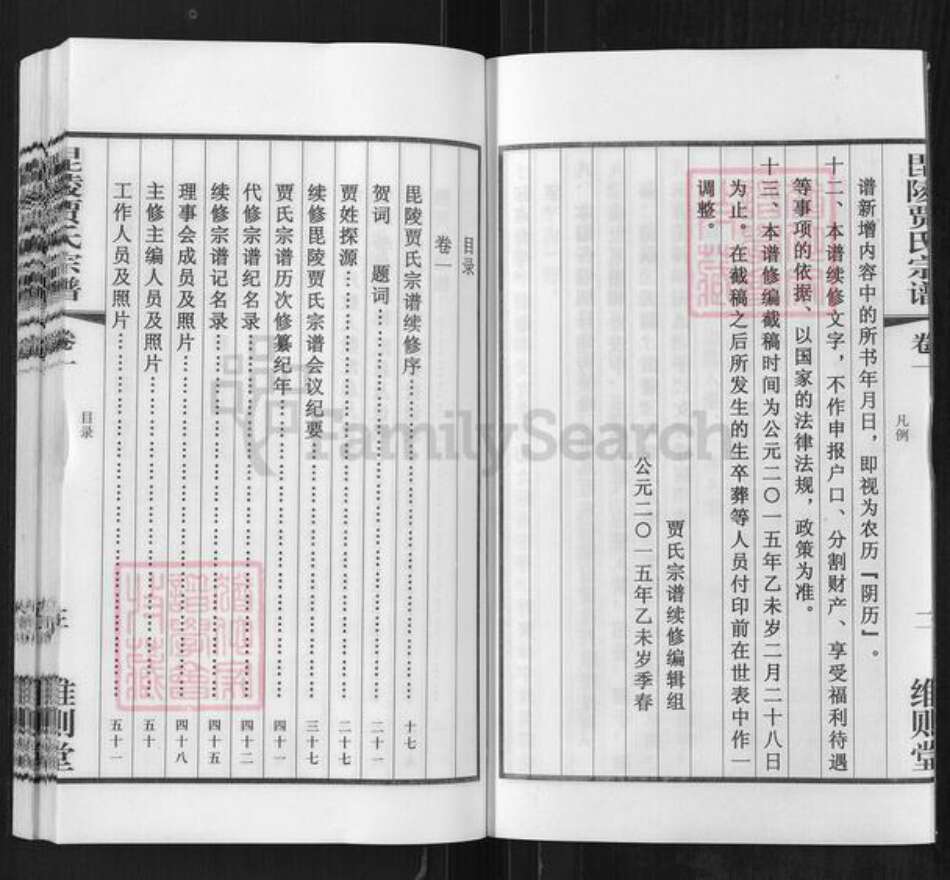 毘陵贾氏宗谱
卷一
凡例
维则堂
谱新增内容中的所书年月日，即视为农历『阴历』。
十二、本谱续修文字，不作申报户口、分割财产、享受福利待遇
等事项的依据、以国家的法律法规，政策为准。
十三、本谱修编截稿时间为公元二〇一五年乙未岁二月二十八日
为止。在截稿之后所发生的生卒葬等人员付印前在世表中作一
调整。
贾氏宗谱续修编辑组
公元二〇一五年乙未岁季春
目录
卷一
毘陵贾氏宗谱续修序……十七
贺词　题词……二十一
贾姓探源……二十七
续修毘陵贾氏宗谱会议纪要……三十七
贾氏宗谱历次修纂纪年……四十一
代修宗谱纪名录……四十二
续修宗谱记名录……四十五
理事会成员及照片……四十八
主修主编人员及照片……五十
工作人员及照片……五十一
毘陵贾氏宗谱
卷一
目录
维则堂
FamilySearch